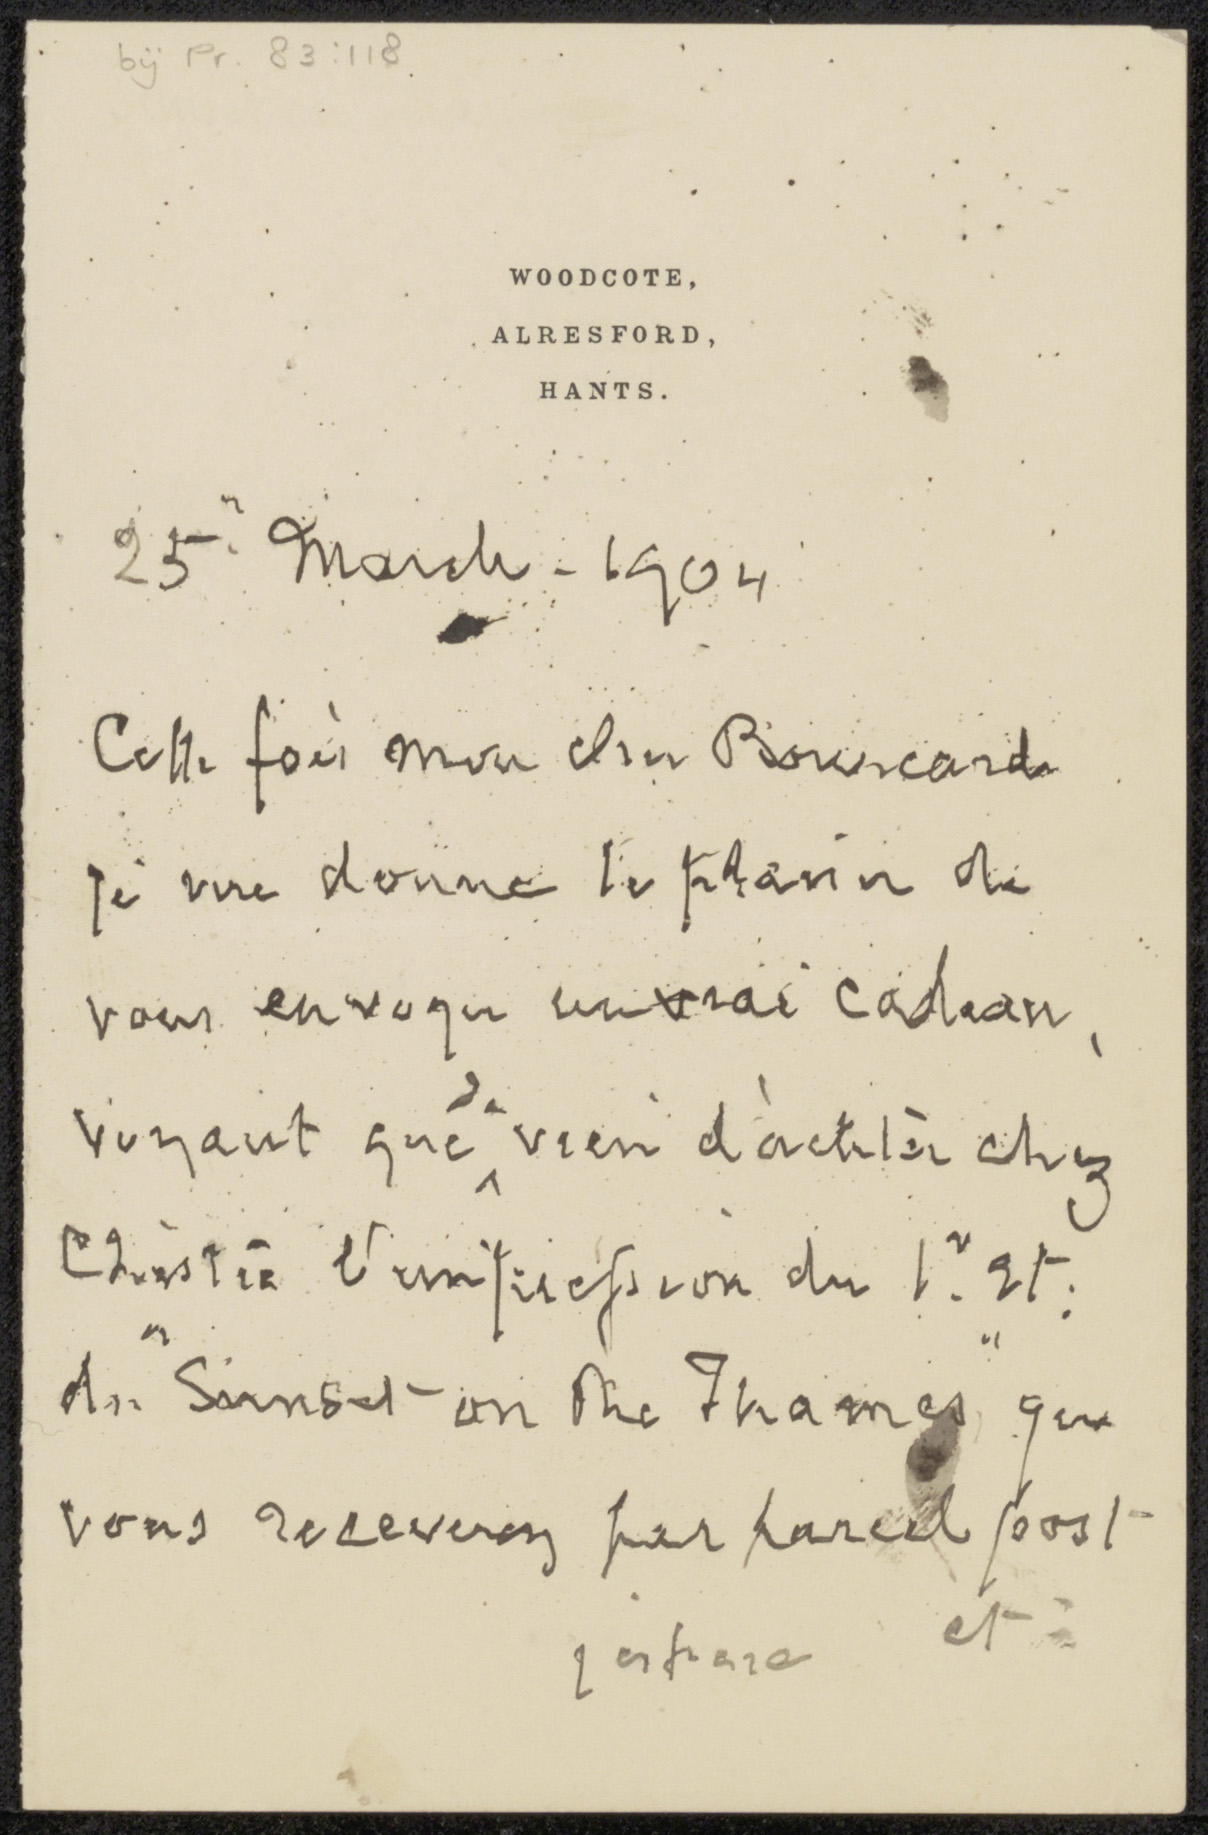 bij Pr. 83:118
WOODCOTE,
ALRESFORD,
HANTS.
25 March - 1904
Cette fois mon cher Bouvcard
je me donne le plaisir de
vous envoyer un vrai cadeau,
voyant que je vien d'acheter chez
Christie l'impression du 1r. et:
du "Sunset on the Thames" que
vous recevrez par parcel post
j'espere et